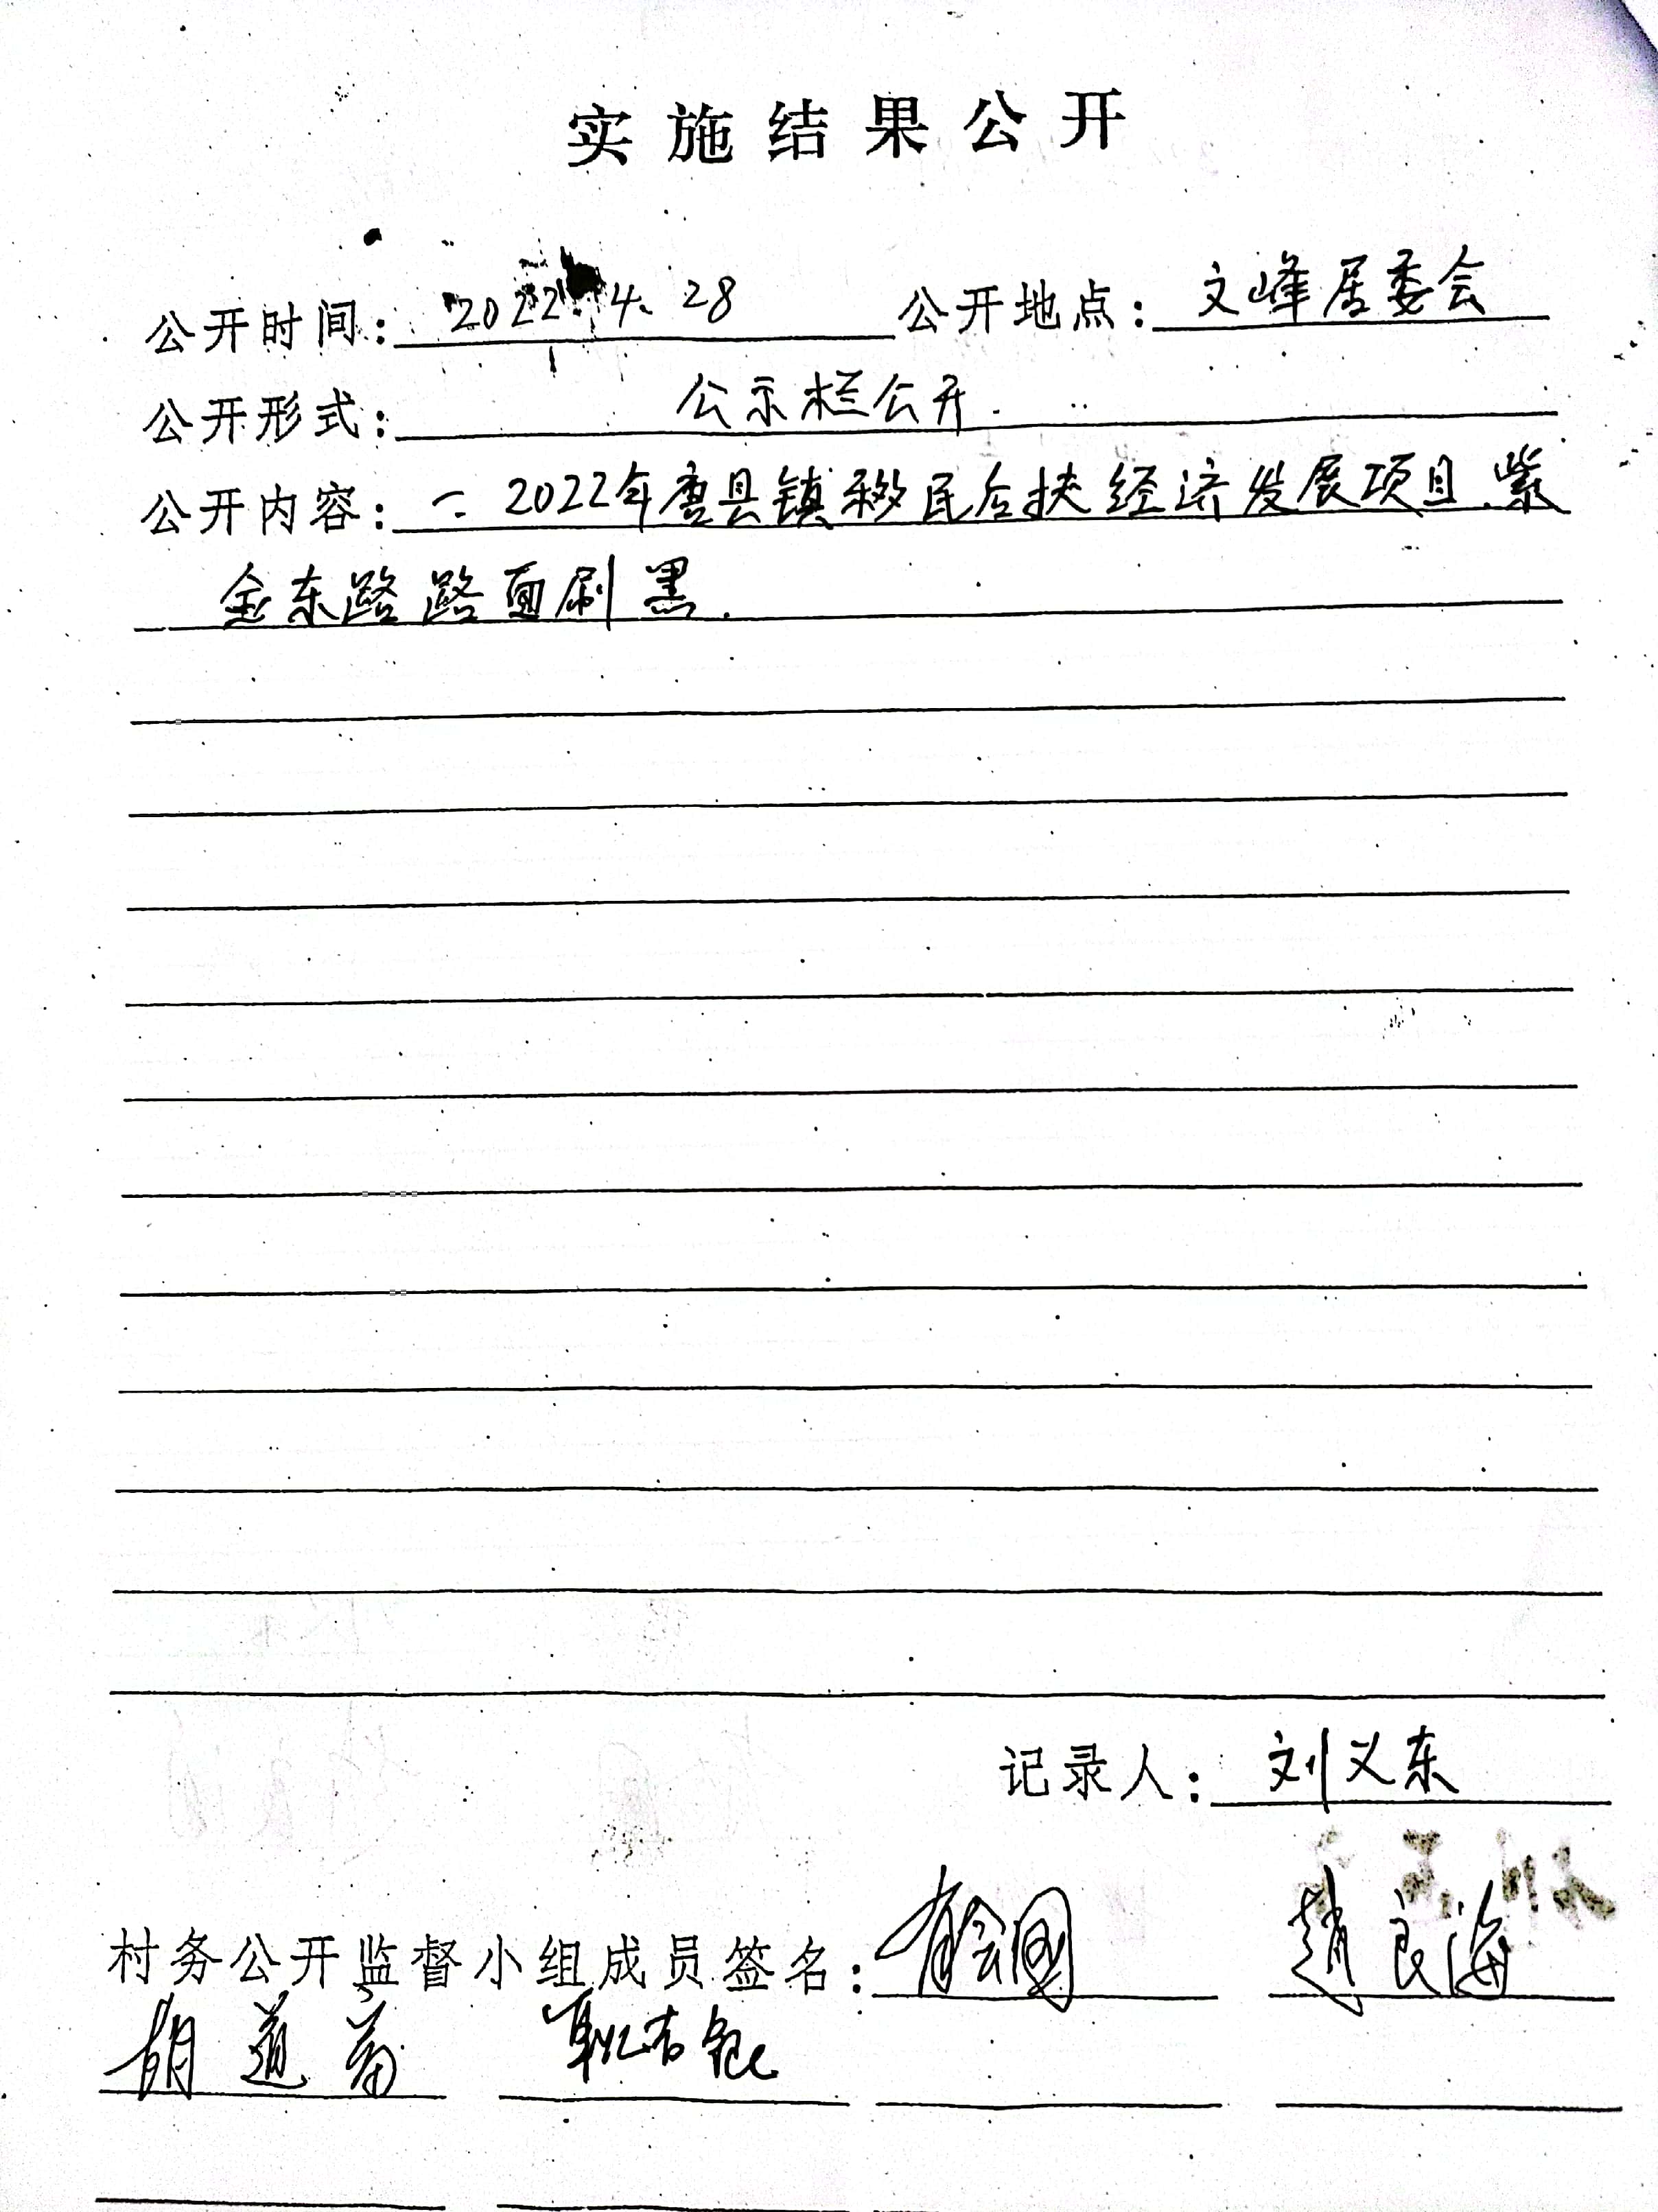 实施结果公开
公开时间：2022.4.28 公开地点：文峰居委会
公开形式：公示栏公开.
公开内容：一：2022年唐县镇移民后扶经济发展项目.紫
金东路路面刷黑.
记录人：刘义东
村务公开监督小组成员签名：赵良海
胡道